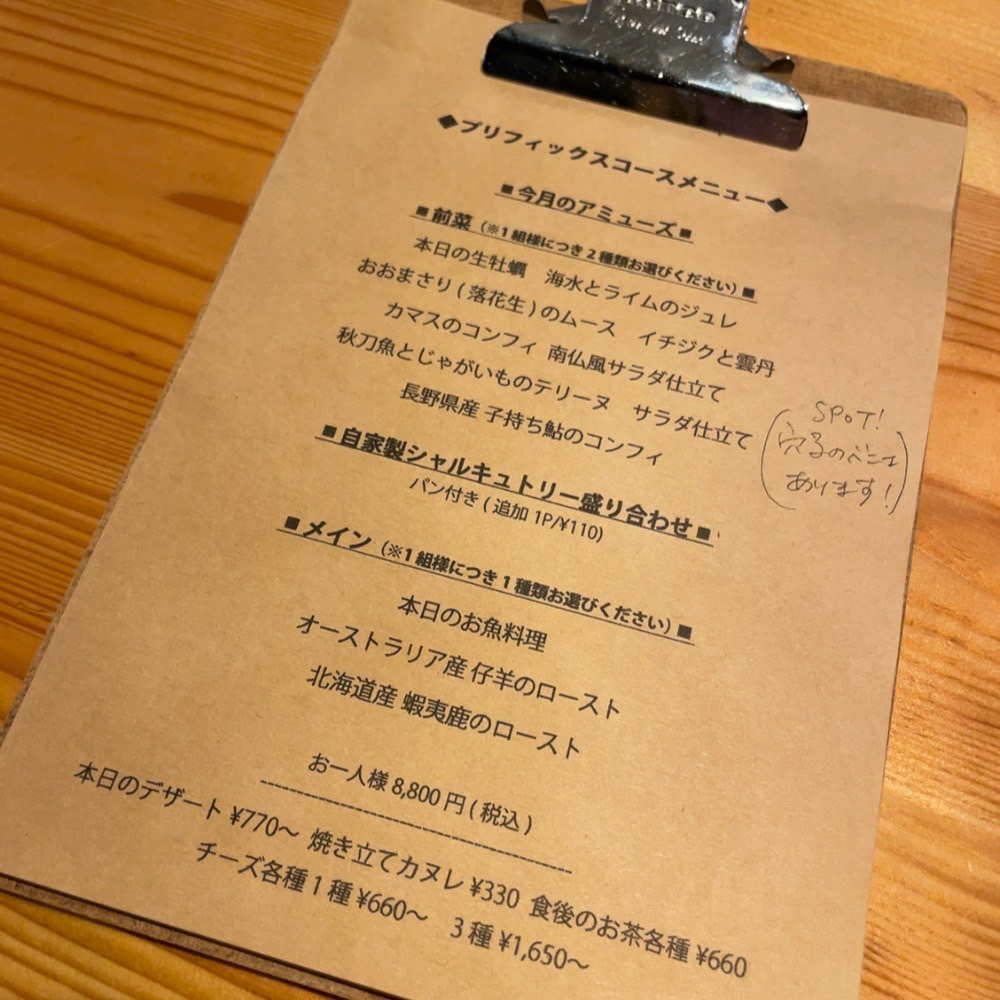 ◆プリフィックスコースメニュー◆
■今月のアミューズ■
■前菜（※1組様につき2種類お選びください）■
本日の生牡蠣　海水とライムのジュレ
おおまさり(落花生)のムース　イチジクと雲丹
カマスのコンフィ 南仏風サラダ仕立て
秋刀魚とじゃがいものテリーヌ　サラダ仕立て
長野県産 子持ち鮎のコンフィ
SPOT!
あります!
■自家製シャルキュトリー盛り合わせ■
パン付き(追加1P/¥110)
■メイン（※1組様につき1種類お選びください）■
本日のお魚料理
オーストラリア産 仔羊のロースト
北海道産 蝦夷鹿のロースト
お一人様 8,800円(税込)
本日のデザート ¥770～ 焼き立てカヌレ ¥330 食後のお茶各種 ¥660
チーズ各種1種 ¥660～　3種 ¥1,650～